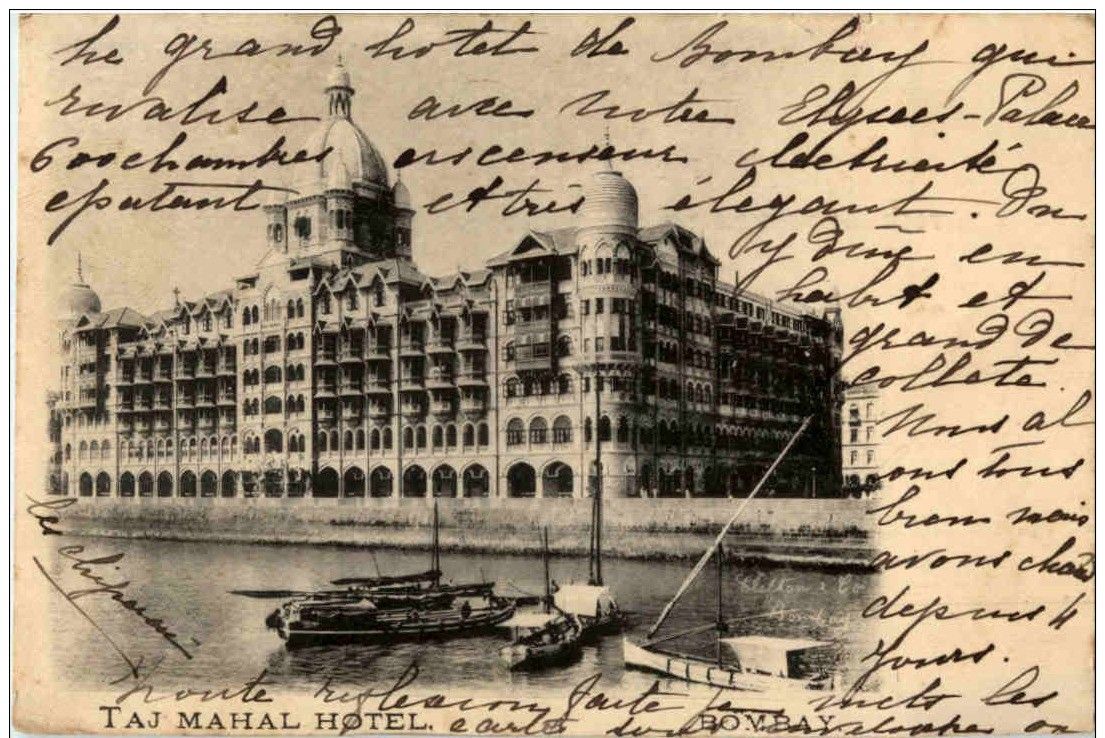 he grand hotel de Bombay qui
rivalise avec notre Elysees-Palace
600 chambres ascenseur electricité
epatant et très élégant. On
y dîne en
habit et
grand de
collete.
Nous al
ons tous
bien mais
avons chaud
depuis 4
jours.
toute reflexion faite je mets les
cartes sous
TAJ MAHAL HOTEL. BOMBAY.